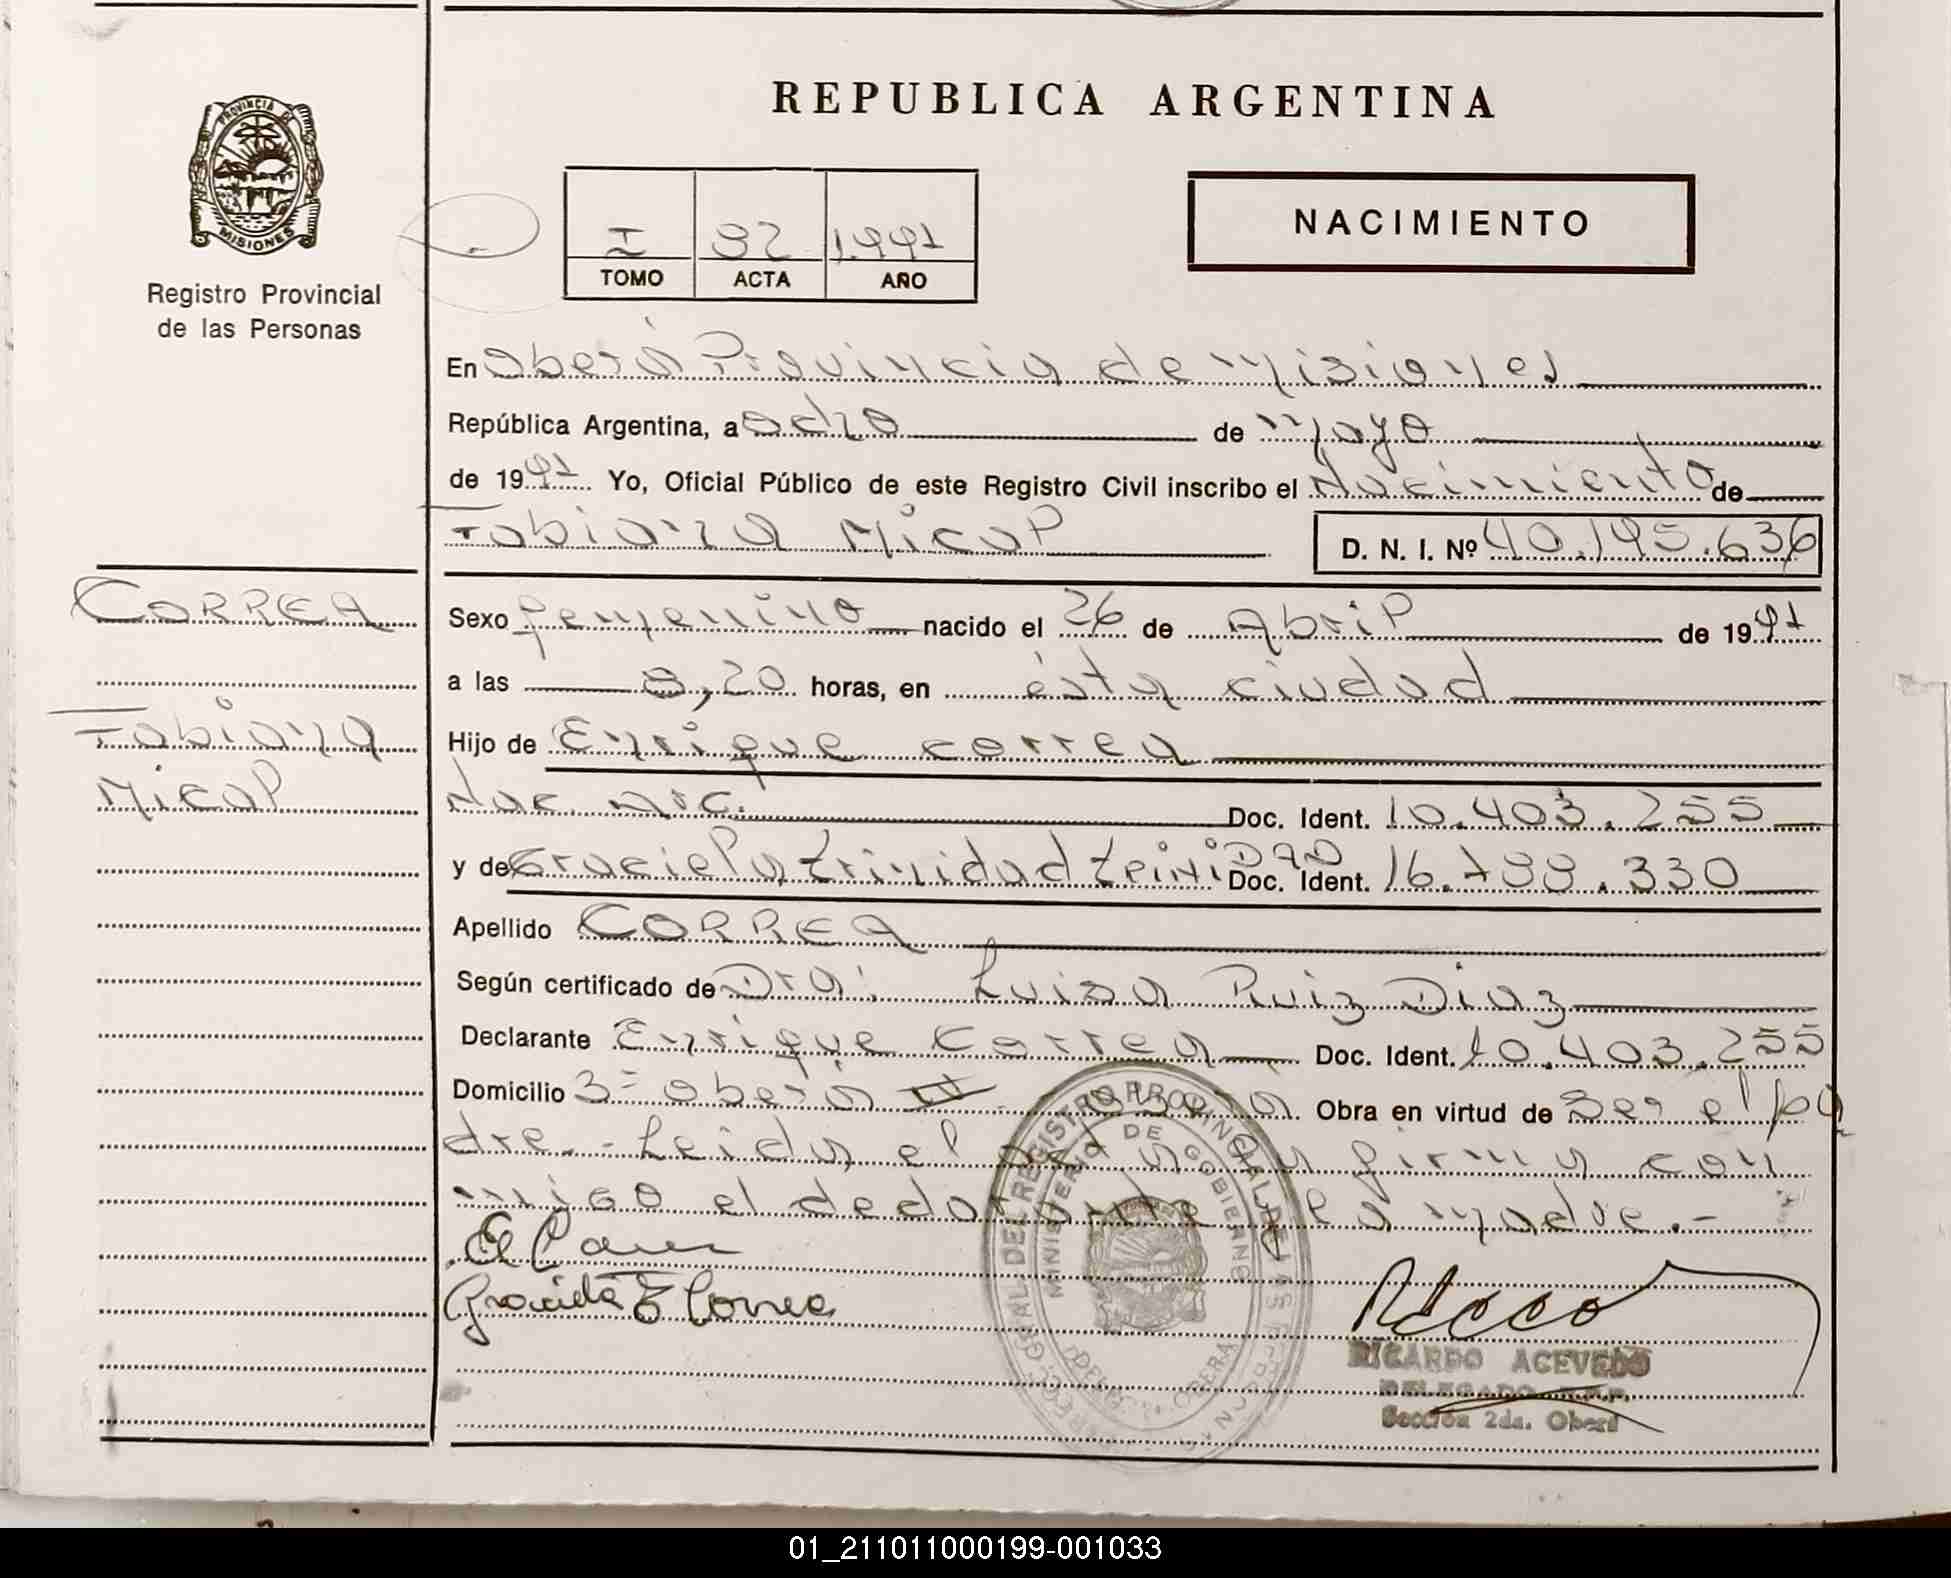 REPUBLICA ARGENTINA
PROVINCIA DE
MISIONES
Registro Provincial
de las Personas
I 92 1.991
TOMO ACTA AÑO
NACIMIENTO
En Oberá Provincia de Misiones
República Argentina, a ocho de mayo
de 1991 Yo, Oficial Público de este Registro Civil inscribo el Nacimiento de
Fabiana Micol D. N. I. Nº 40.195.636
CORREA
Sexo femenino nacido el 26 de Abril de 1991
a las 8,20 horas, en ésta ciudad
Fabiana
Hijo de Enrique correa
Micol
Nac. Arg. Doc. Ident. 10.403.255
y de Graciela trinidad Doc. Ident. 16.788.330
Apellido CORREA
Según certificado de Dra: Luisa Ruiz Diaz
Declarante Enrique Correa Doc. Ident. 10.403.255
Domicilio oberá Obra en virtud de Ser el pa
dre.- Leida el acta la firma con
migo el declarante y la madre.-
REGISTRO PROVINCIAL DE LAS
MINISTERIO DE GOBIERNO
OBERA
Graciela T Correa
RICARDO ACEVEDO
DELEGADO
Sección 2da. Oberá
01_211011000199-001033